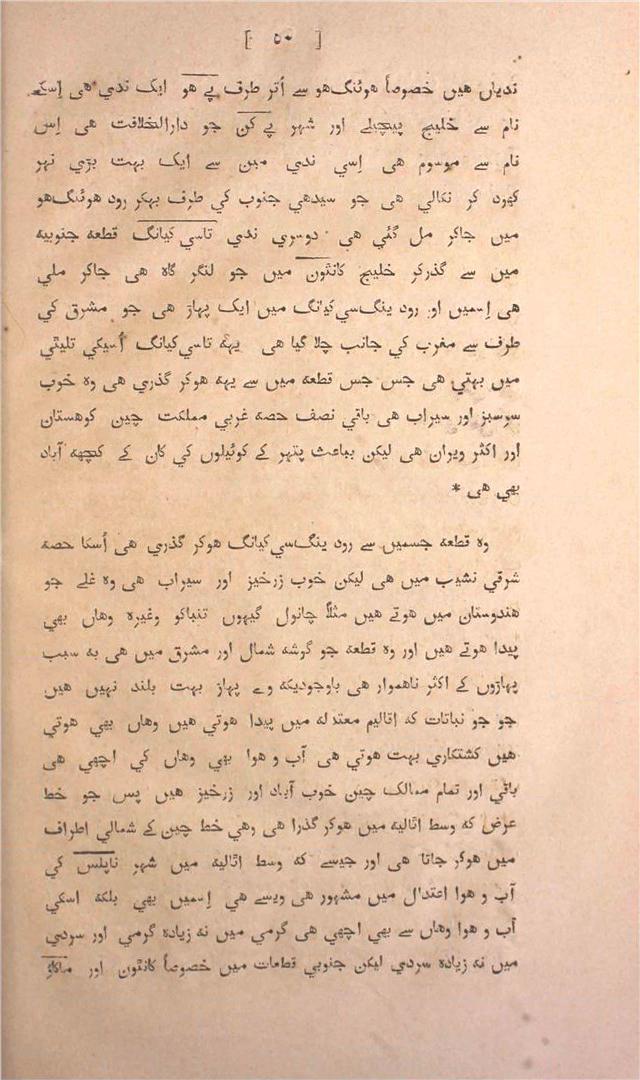 [ ٥٠ ]
ندیاں هیں خصوصاً هوئنگ‌هو سے اُتر طرف پے هو ایک ندي هی اِسکے
نام سے خلیج پیچیلے اور شهر پے کن جو دارالخلافت هی اِس
نام سے موسوم هی اِسي ندي مین سے ایک بهت بڑي نهر
کهود کر نکالي هی جو سیدهي جنوب کي طرف بهکر رود هوئنگ‌هو
میں جاکر مل گئي هی دوسري ندي تاسي کیانگ قطعه جنوبیه
میں سے گذرکر خلیج کانٹون میں جو لنگر گاه هی جاکر ملي
هی اِسمیں اور رود ینگ‌سي‌کیانگ میں ایک پهاڑ هی جو مشرق کي
طرف سے مغرب کي جانب چلا گیا هی یهه تاسي کیانگ اُسیکي تلیٹي
میں بهتي هی جس جس قطعه میں سے یهه هوکر گذري هی وه خوب
سرسبز اور سیراب هی باقي نصف حصه غربي مملکت چین کوهستان
اور اکثر ویران هی لیکن بباعث پتهر کے کوئیلوں کي کان کے کچهه آباد
بهي هی *
وه قطعه جسمیں سے رود ینگ‌سي کیانگ هوکر گذري هی اُسکا حصه
شرقي نشیب میں هی لیکن خوب زرخیز اور سیراب هی وه غلے جو
هندوستان میں هوتے هیں مثلاً چانول گیهوں تنباکو وغیره وهاں بهي
پیدا هوتے هیں اور وه قطعه جو گوشه شمال اور مشرق میں هی به سبب
پهاڑوں کے اکثر ناهموار هی باوجودیکه وے پهاڑ بهت بلند نهیں هیں
جو جو نباتات که اقالیم معتدله میں پیدا هوتي هیں وهاں بهي هوتي
هیں کشتکاري بهت هوتي هی آب و هوا بهي وهاں کي اچهي هی
باقي اور تمام ممالک چین خوب آباد اور زرخیز هیں پس جو خط
عرض که وسط اٹالیه میں هوکر گذرا هی وهي خط چین کے شمالي اطراف
میں هوکر جاتا هی اور جیسے که وسط اٹالیه میں شهر ناپلس کي
آب و هوا اعتدال میں مشهور هی ویسے هي اِسمیں بهي بلکه اسکي
آب و هوا وهاں سے بهي اچهي هی گرمي میں نه زیاده گرمي اور سردي
میں نه زیاده سردي لیکن جنوبي قطعات میں خصوصاً کانٹون اور ماکاؤ